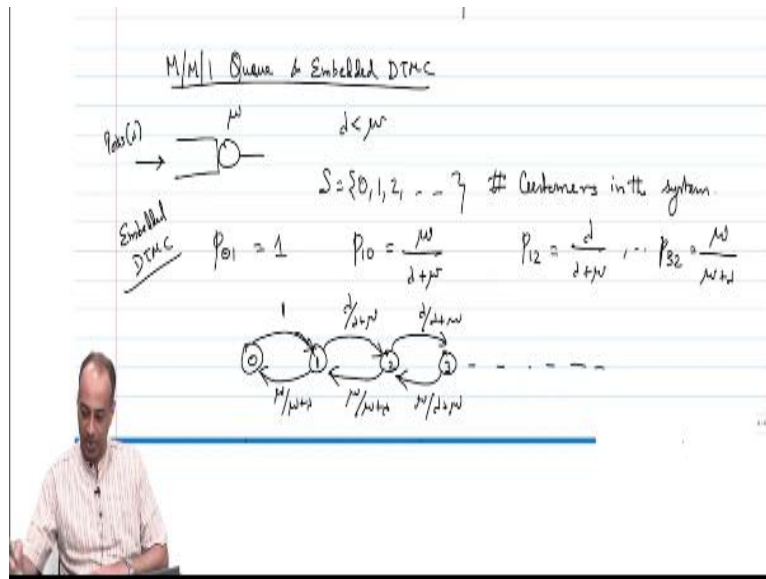 M/M/1 Queue & Embedded DTMC
μ
Pois(λ)
λ < μ
S = {0, 1, 2, - - -} # Customers in the system.
Embedded
DTMC
P01 = 1 P10 = μ/λ+μ P12 = λ/λ+μ , ·· P32 = μ/μ+λ
1 λ/λ+μ λ/λ+μ
0 1 2 3 - - - - - -
μ/μ+λ μ/μ+λ μ/λ+μ